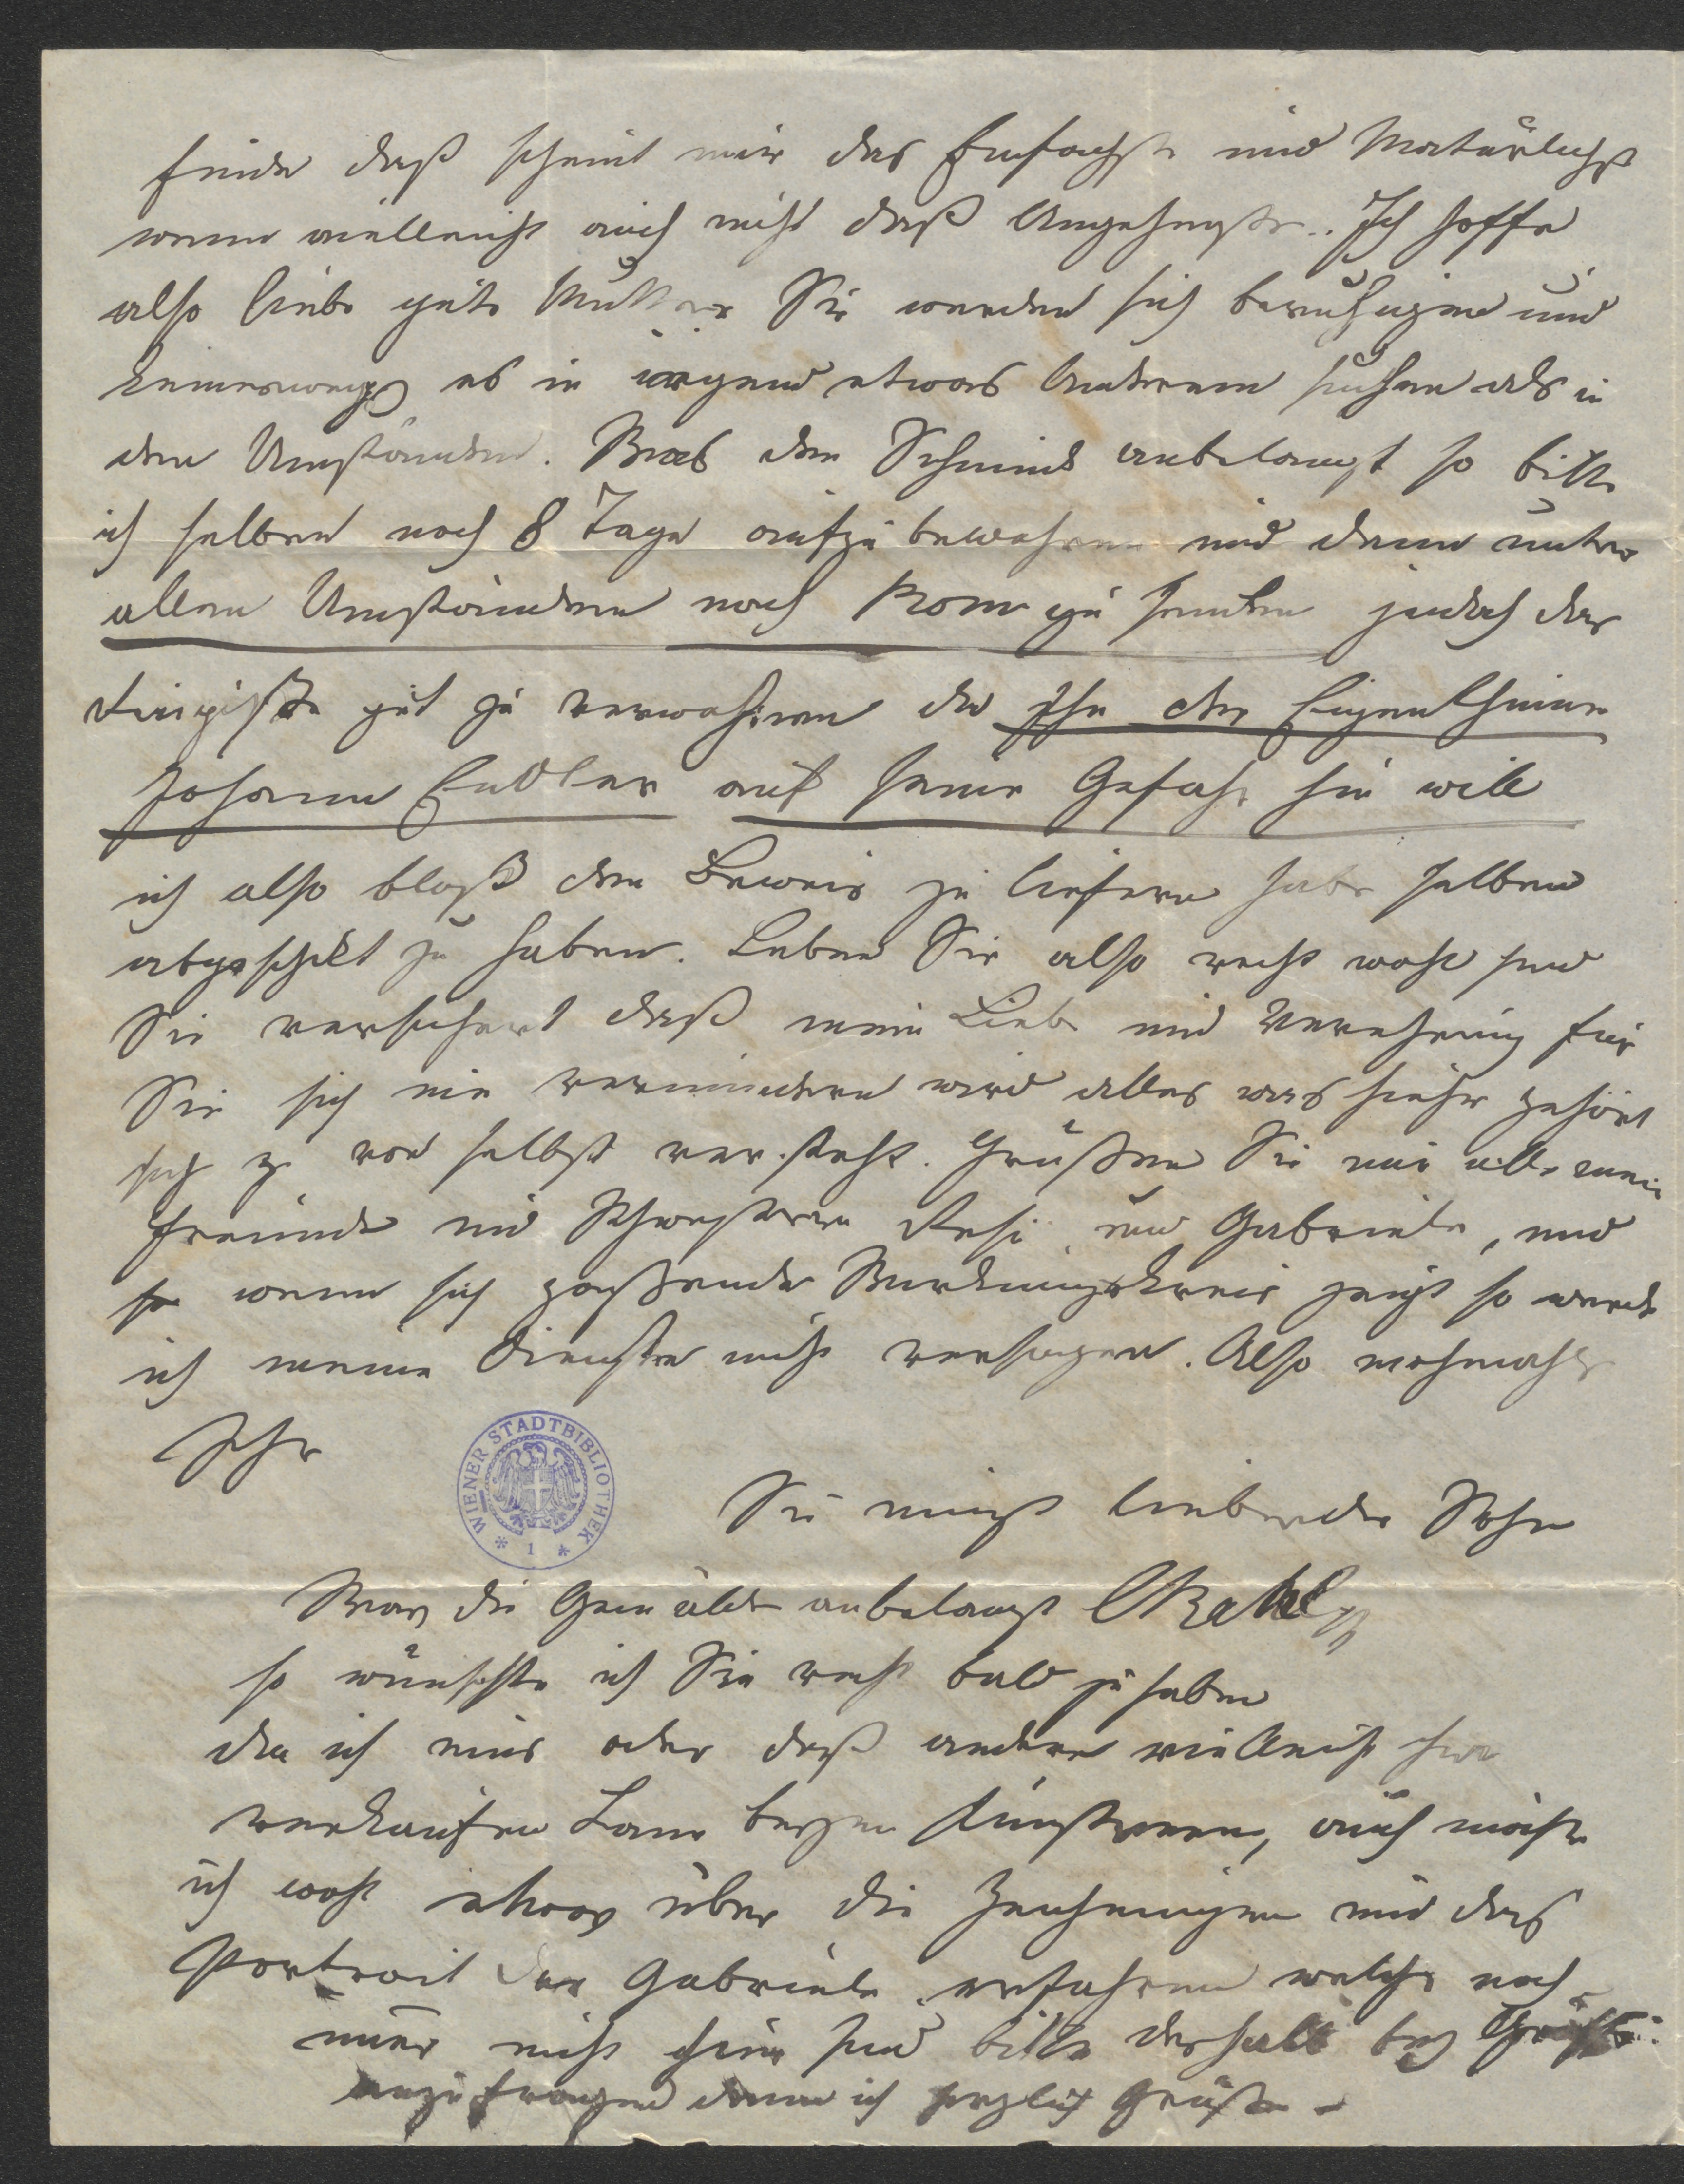 finde daß scheint mir das Einfachste und Natürlichste
wenn vielleicht auch nicht daß Angenehmste. Ich hoffe
also liebe gute Mutter Sie werden sich beruhigen und
keineswegs es in irgend etwas Anderem suchen als in
den Umständen. Was den Schmid anbelangt so bitte
ich selben noch 8 Tage aufzubewahren und dann unter
allen Umständen nach Rom zu senden jedoch das
gut zu verwahren da Ihn der Eigenthümer
Johann Endler auf seine Gefahr hin will
ich also bloß den Beweis zu liefern habe selben
abgeschikt zu haben. Leben Sie also recht wohl sind
Sie versichert daß meine Liebe und Verehrung für
Sie sich nie vermindern wird alles was hieher gehört
sich von selbst versteht. Grüßen Sie mir alle meine
Freunde und Schwestern Resi und Gabriele, und
so wenn sich paßender Wirkungskreis zeigt so werde
ich meine Dienste nicht versagen. Also nochmahls
Ihr
WIENER STADTBIBLIOTHEK
1
Sie innigst liebender Sohn
Was die Gemälde anbelangt CRahl
so wünschte ich Sie recht bald zu haben
da ich eins oder daß andere vielleicht hier
verkaufen kann auch möchte
ich wohl etwas über die Zeichnungen und das
Portrait der Gabriele erfahren welche noch
immer nicht hier sind bitte deshalb bey
anzufragen denn ich herzlich Grüße